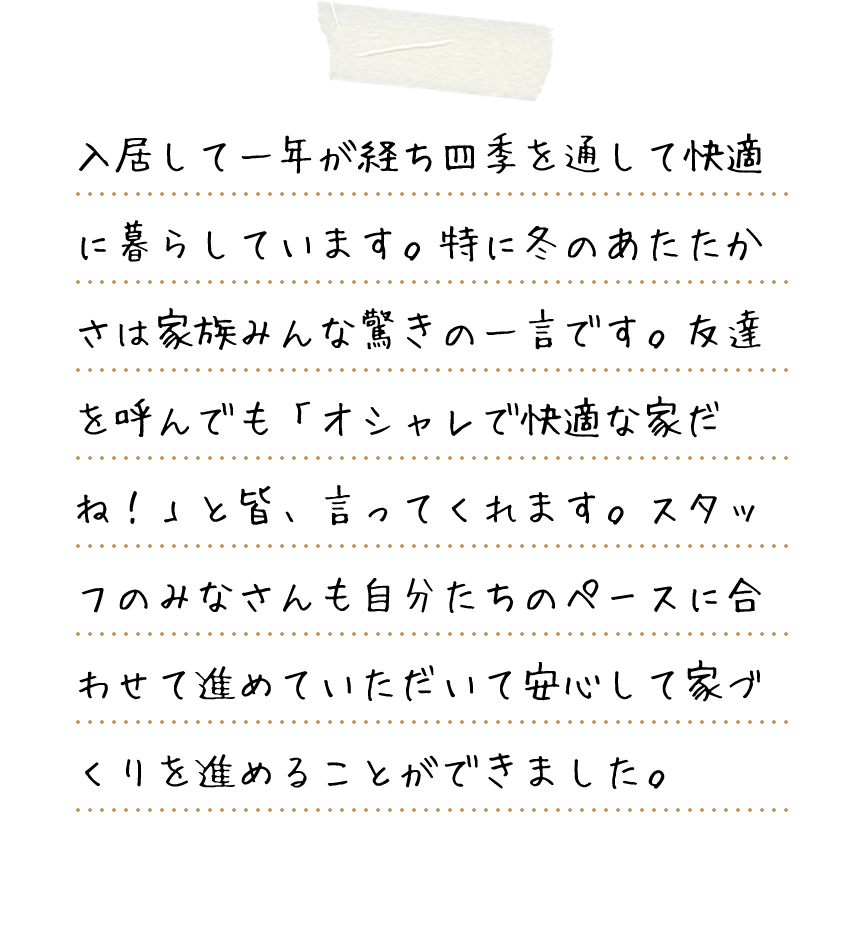 入居して一年が経ち四季を通して快適
に暮らしています。特に冬のあたたか
さは家族みんな驚きの一言です。友達
を呼んでも「オシャレで快適な家だ
ね！」と皆、言ってくれます。スタッ
フのみなさんも自分たちのペースに合
わせて進めていただいて安心して家づ
くりを進めることができました。